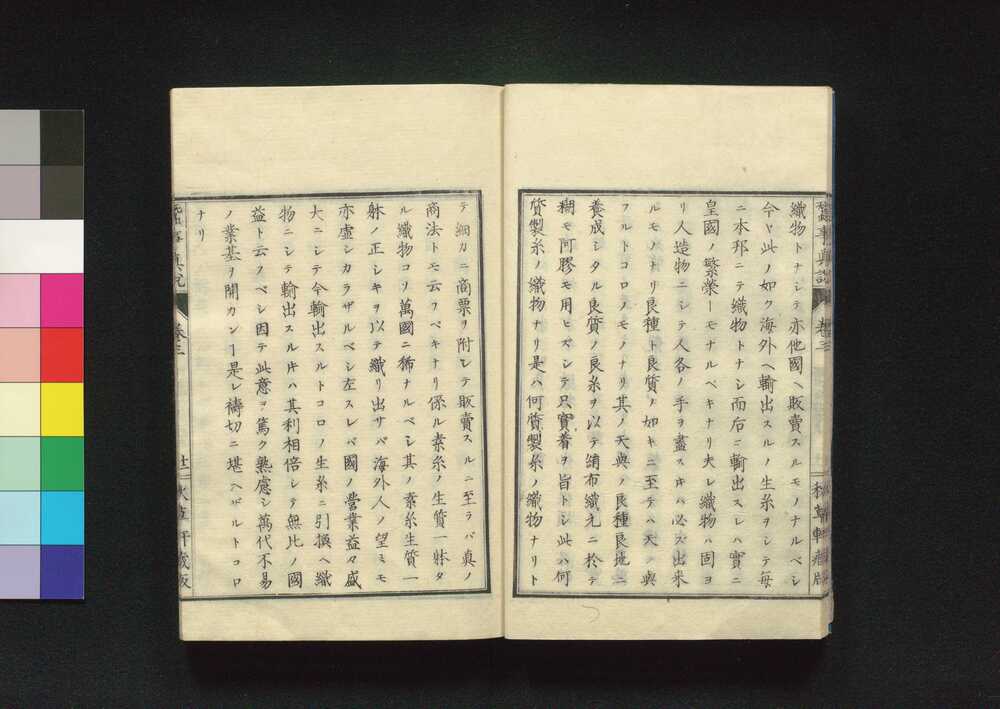 織物トナシテ亦他國ヘ販賣スルモノナルベシ
今ヤ此ノ如ク海外ヘ輸出スルノ生糸ヲシテ毎
ニ本邦ニテ織物トナシ而后ニ輸出スレハ實ニ
皇國ノ繁榮一モナルベキナリ夫レ織物ハ固ヨ
リ人造物ニシテ人各ノ手ヲ盡スキハ必ズ出来
ルモノナリ良種ト良質ノ如キニ至テハ天ノ與
フルトコロノモノナリ其ノ天與ノ良種良地ニ
養成シタル良質ノ良糸ヲ以テ絹布織尤ニ於テ
糊モ阿膠モ用ヒズシテ只實着ヲ旨トシ此ハ何
質製糸ノ織物ナリ是ハ何質製糸ノ織物ナリト
蠶事真説
卷三
秋琴軒藏版
テ細カニ商票ヲ附シテ販賣スルニ至ラバ真ノ
商法トモ云フベキナリ係ル素糸ノ生質一躰タ
ル織物コソ萬國ニ稀ナルベシ其ノ素糸生質一
躰ノ正シキヲ以テ織リ出サバ海外人ノ望ミモ
亦虚シカラザルベシ左スレバ國ノ營業益々盛
大ニシテ今輸出スルトコロノ生糸ニ引換ヘ織
物ニシテ輸出スル片ハ其利相倍シテ無比ノ國
益ト云ノベシ因テ此意ヲ篤ク熟慮シ萬代不易
ノ業基ヲ開カンヿ是レ禱切ニ堪ヘザルトコロ
ナリ
卷三
軒藏版